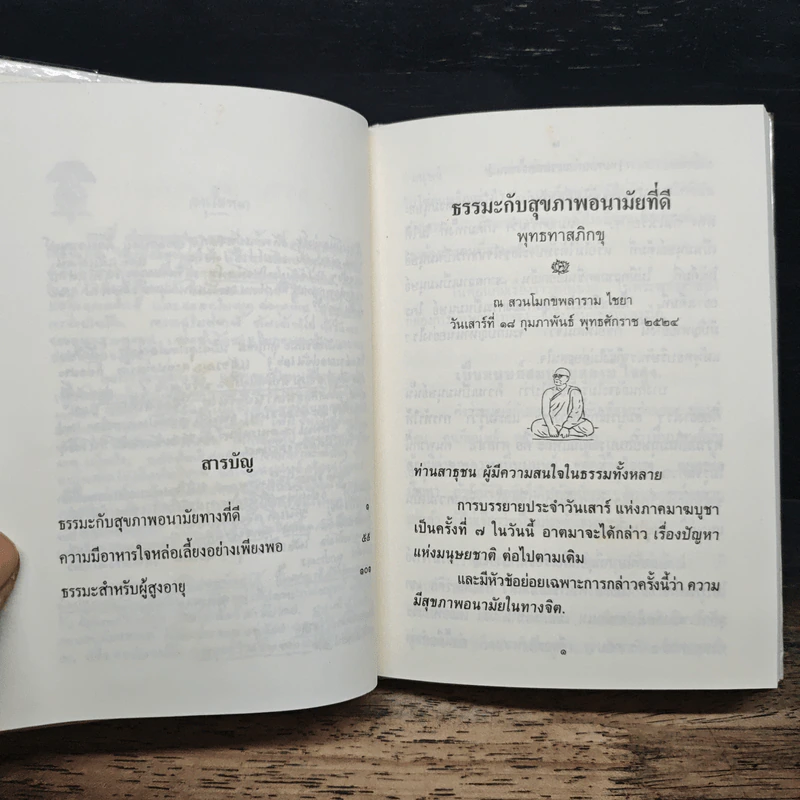 สารบัญ
ธรรมะกับสุขภาพอนามัยทางที่ดี ๑
ความมีอาหารใจหล่อเลี้ยงอย่างเพียงพอ ๕๕
ธรรมะสำหรับผู้สูงอายุ ๑๐๑
ธรรมะกับสุขภาพอนามัยที่ดี
พุทธทาสภิกขุ
ณ สวนโมกขพลาราม ไชยา
วันเสาร์ที่ ๑๘ กุมภาพันธ์ พุทธศักราช ๒๕๒๔
ท่านสาธุชน ผู้มีความสนใจในธรรมทั้งหลาย
การบรรยายประจำวันเสาร์ แห่งภาคมาฆบูชา
เป็นครั้งที่ ๗ ในวันนี้ อาตมาจะได้กล่าว เรื่องปัญหา
แห่งมนุษยชาติ ต่อไปตามเดิม
และมีหัวข้อย่อยเฉพาะการกล่าวครั้งนี้ว่า ความ
มีสุขภาพอนามัยในทางจิต.
๑